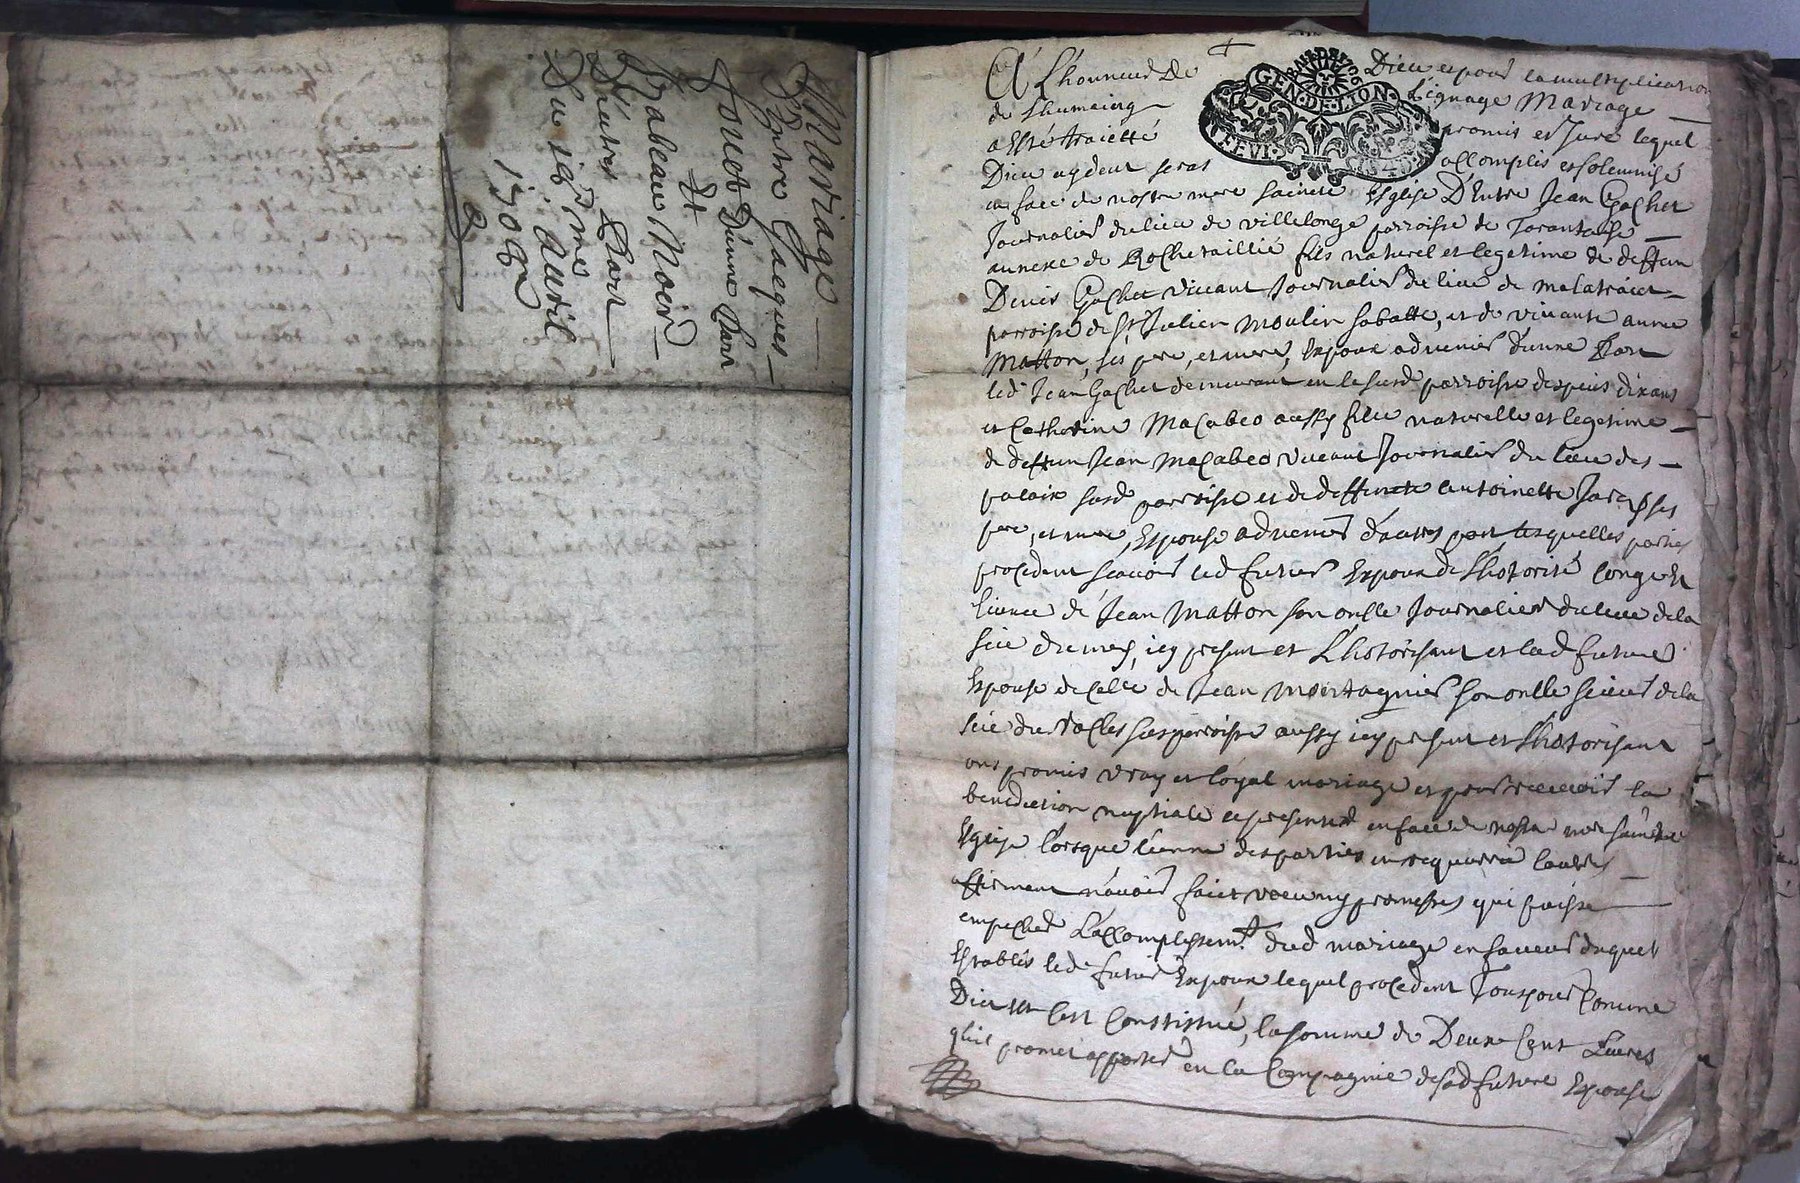 Mariage
Entre Jacques
Jouet D'unne Part
Et
Isabeau Noir
D'autre Part
Du 19.me auril
1709
A L'honneur de Dieu et pour la multiplication
de L'humaing Lignage Mariage
a Esté traietté promis et Juré lequel
Dieu aydent seras accomplis et solemnisé
en face de nostre mere saincte Esglise D'Entre Jean Gachet
Journalier du lieu de villelonge parroisse de Tarantaise
annexe de Rochetaillié fils naturel et legetime de deffun
Denis Gachet viuant Journalier du lieu de malatraict
parroisse de St Julien Moulin sabatte, et de viuante anne
Matton, ses pere, et mere, Expoux aduenir d'unne Part
led Jean Gachet demeurant en la susd parroisse despuis dix ans
et Catherine Macabeo aussy fille naturelle et legetime
de deffun Jean Macabeo viuant Journalier du lieu des
palais susd parroisse et de deffuncte antoinette ses
pere, et mere, Espouse aduenir d'autre part lesquelles parties
procedent scauoir led futur Expoux de L'hotorité conge et
licence de Jean Matton son onlle Journalier du lieu de la
scie du mey, icy present et L'hotorisant et lad future
Espouse de celle de Jean Montagnier son onlle scieur de la
scie du susparroisse aussy icy present et L'hotorisant
ont promis vray et loyal mariage et pour receuoir la
benediction nuptiale ce presenter en face de nostre mere saincte
Esglise lorsque l'unne des parties en requerra l'autre
affirment n'auoir faict voeu ny promesses qui puisse
empecher L'accomplissemt dud mariage en faueur duquel
Establis led futur Expoux lequel procedent Tousjour comme
Dict est c'est Constitué, la somme de Deux Cent Liures
qu'il promet apporter en la Compagnie de sad future Expouse
GEN·DE·LION·